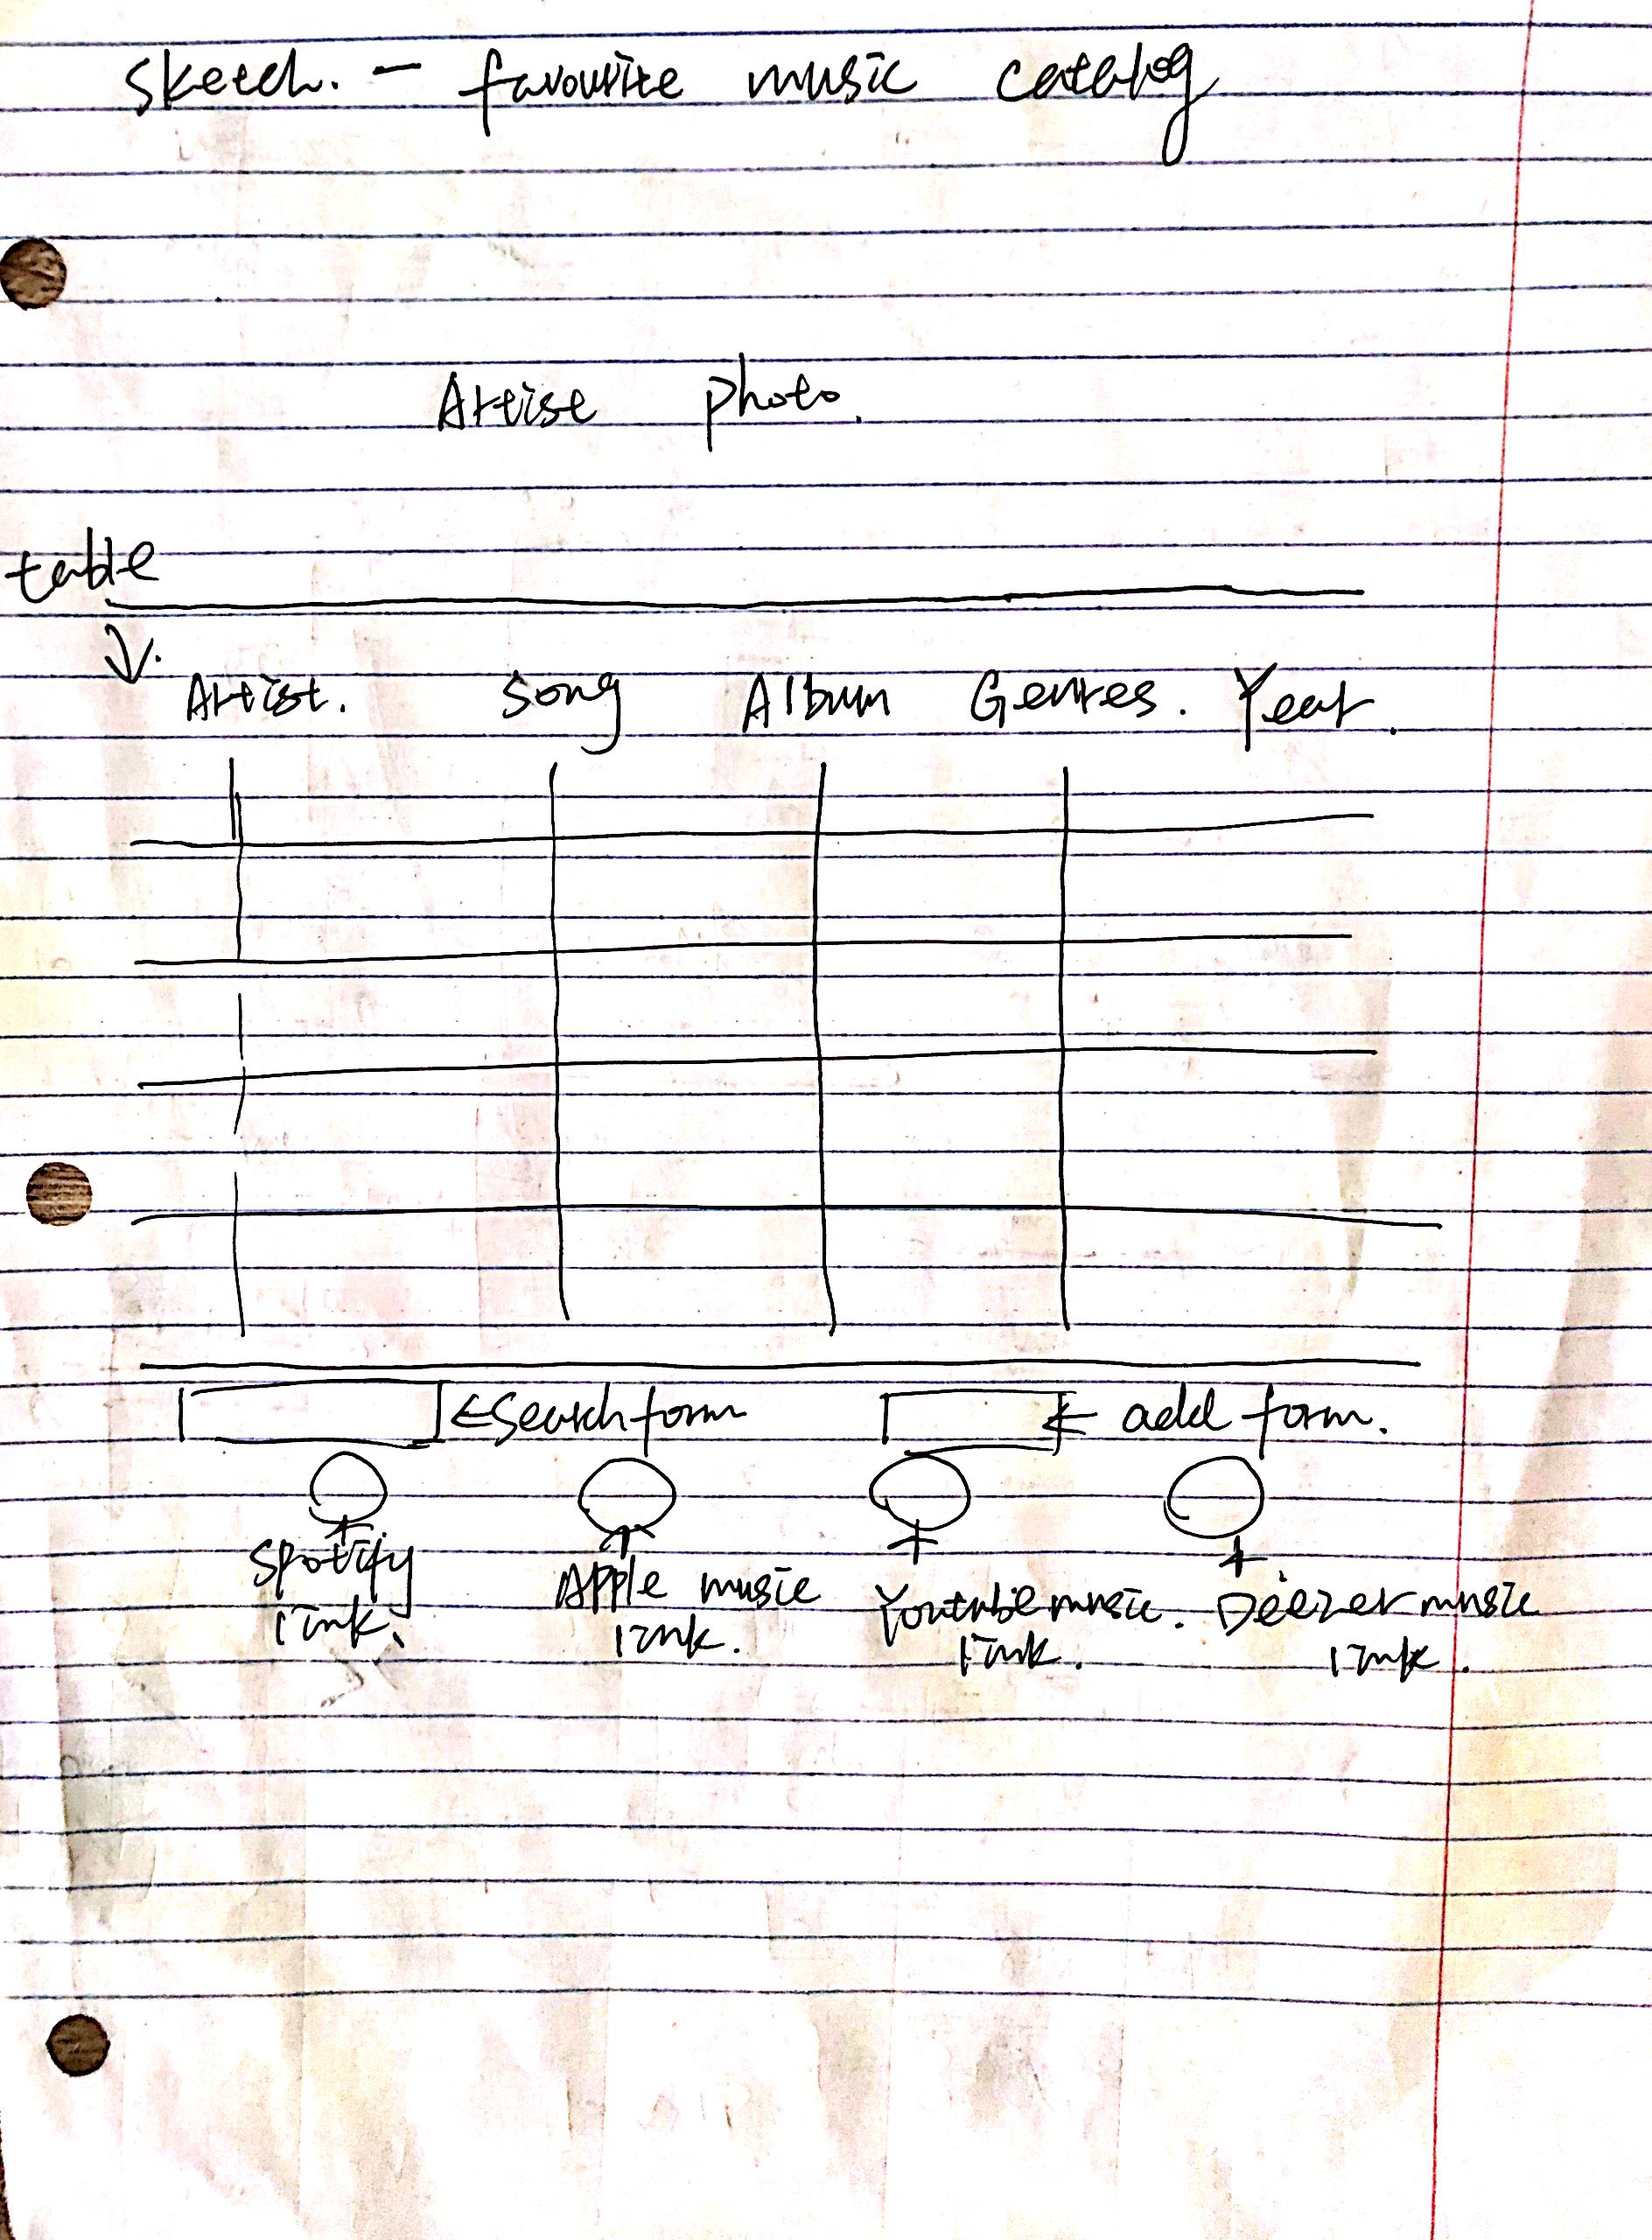 Sketch. - favourite music catalog
Artist photo.
table
Artist. Song Album Genres. Year.
search form add form.
Spotify link.
Apple music link.
Youtube music. link.
Deezer music link.